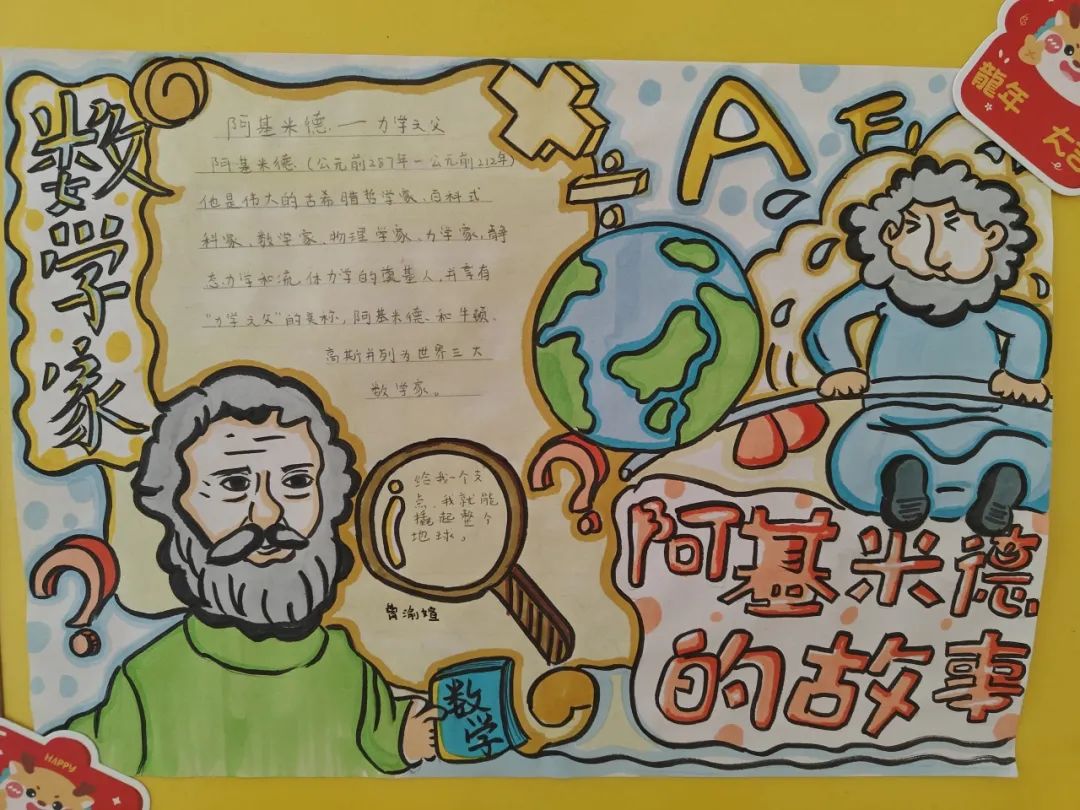 数学家
阿基米德——力学之父
阿基米德（公元前287年一公元前212年）
他是伟大的古希腊哲学家、百科式
科家、数学家、物理学家、力学家，静
态力学和流体力学的奠基人，并享有
“力学之父”的美称，阿基米德和牛顿、
高斯并列为世界三大
数学家。
给我一个支
点，我就能
撬起整个
地球。
数学
A F
阿基米德
的故事
龍年
大吉
HAPPY